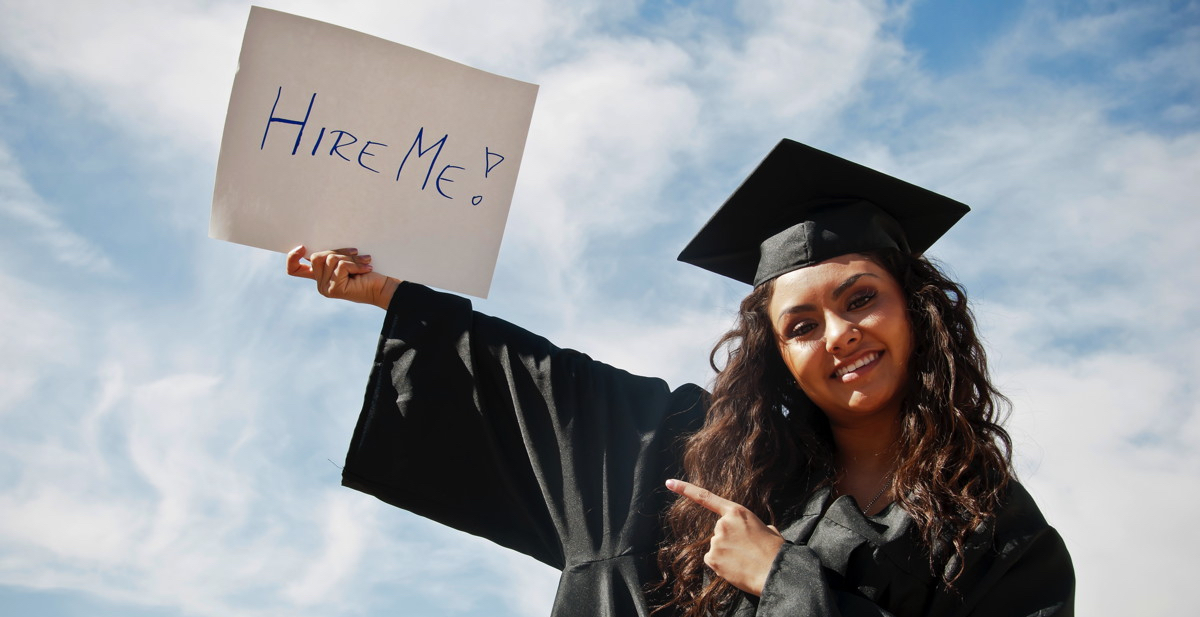 HIRE ME!